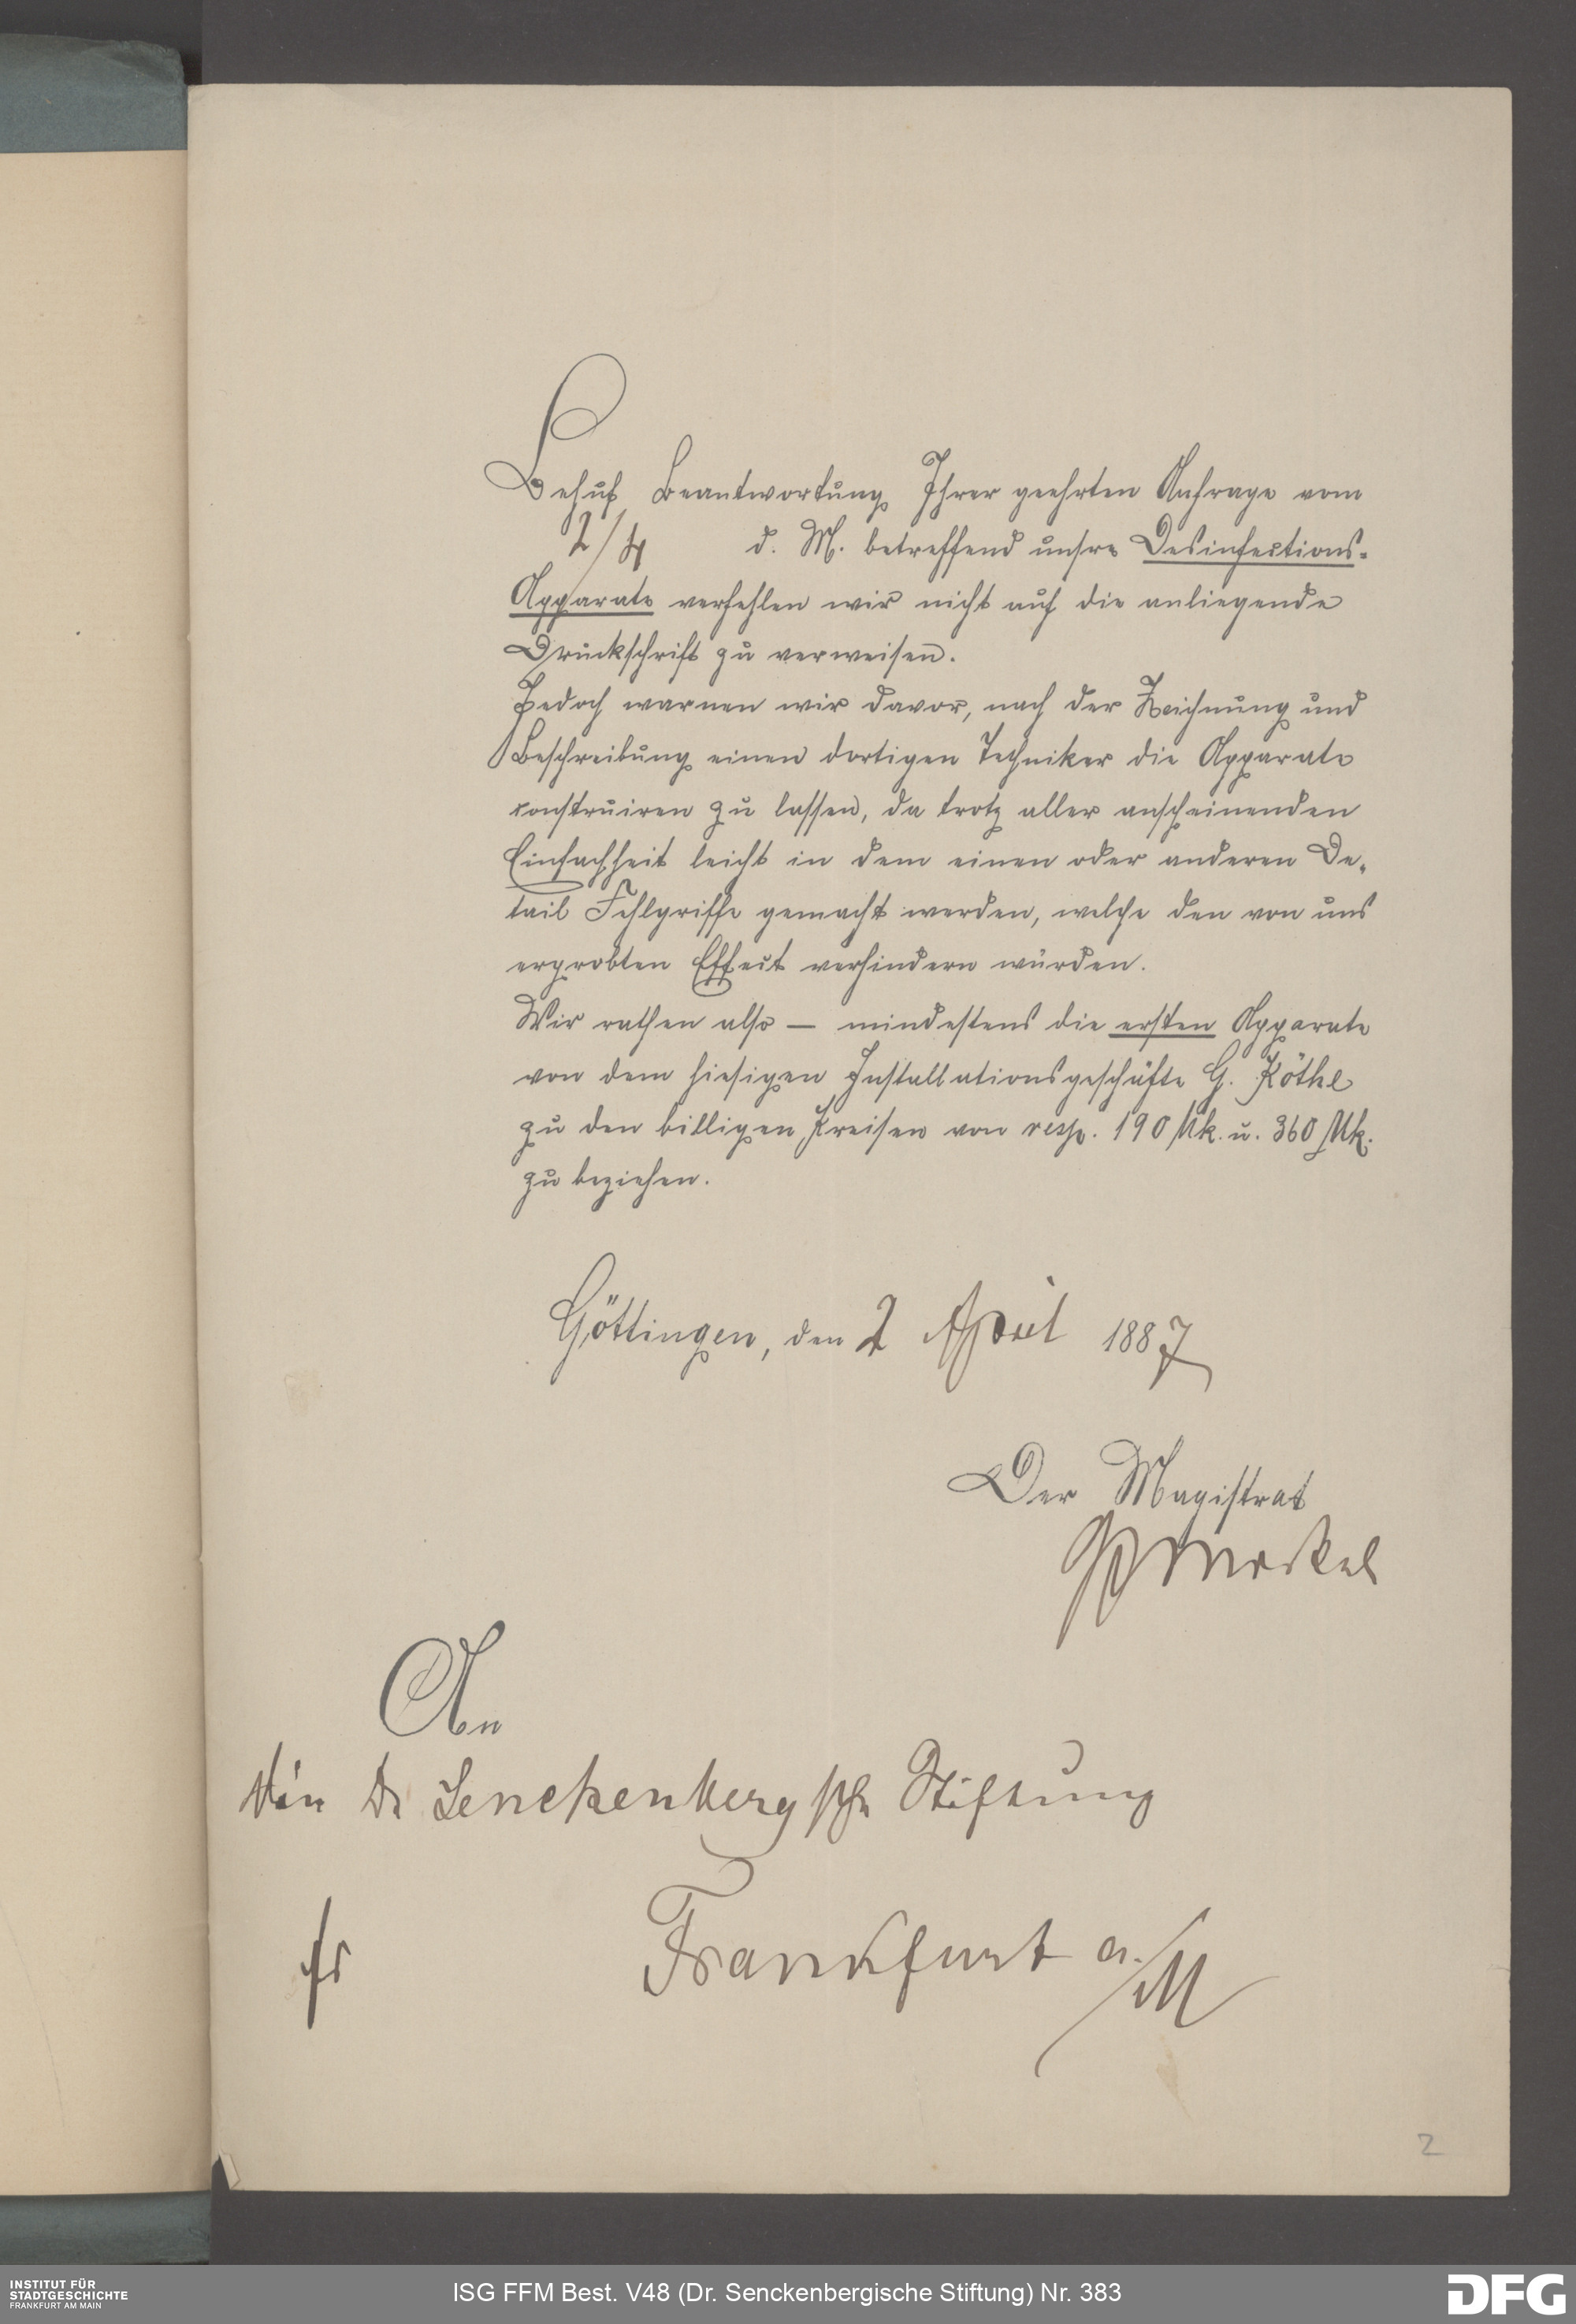 Behuf Beantwortung Ihrer geehrten Anfrage vom
2/4 d. M. betreffend unsre Desinfections-
Apparate verfehlen wir nicht auf die anliegende
Druckschrift zu verweisen.
Jedoch warnen wir davor, nach der Zeichnung und
Beschreibung einen dortigen Techniker die Apparate
construiren zu lassen, da trotz aller anscheinenden
Einfachheit leicht in dem einen oder anderen De-
tail Fehlgriffe gemacht werden, welche den von uns
erprobten Effect verhindern würden.
Wir rathen also — mindestens die ersten Apparate
von dem hiesigen Installationsgeschäfte G. Köthe
zu den billigen Preisen von resp. 190 Mk. u. 360 Mk.
zu beziehen.
Göttingen, den 2 April 1887
Der Magistrat
Merkel
An
Dr Senckenbergsche Stiftung
Frankfurt a./M
2
INSTITUT FÜR
STADTGESCHICHTE
FRANKFURT AM MAIN
ISG FFM Best. V48 (Dr. Senckenbergische Stiftung) Nr. 383
DFG